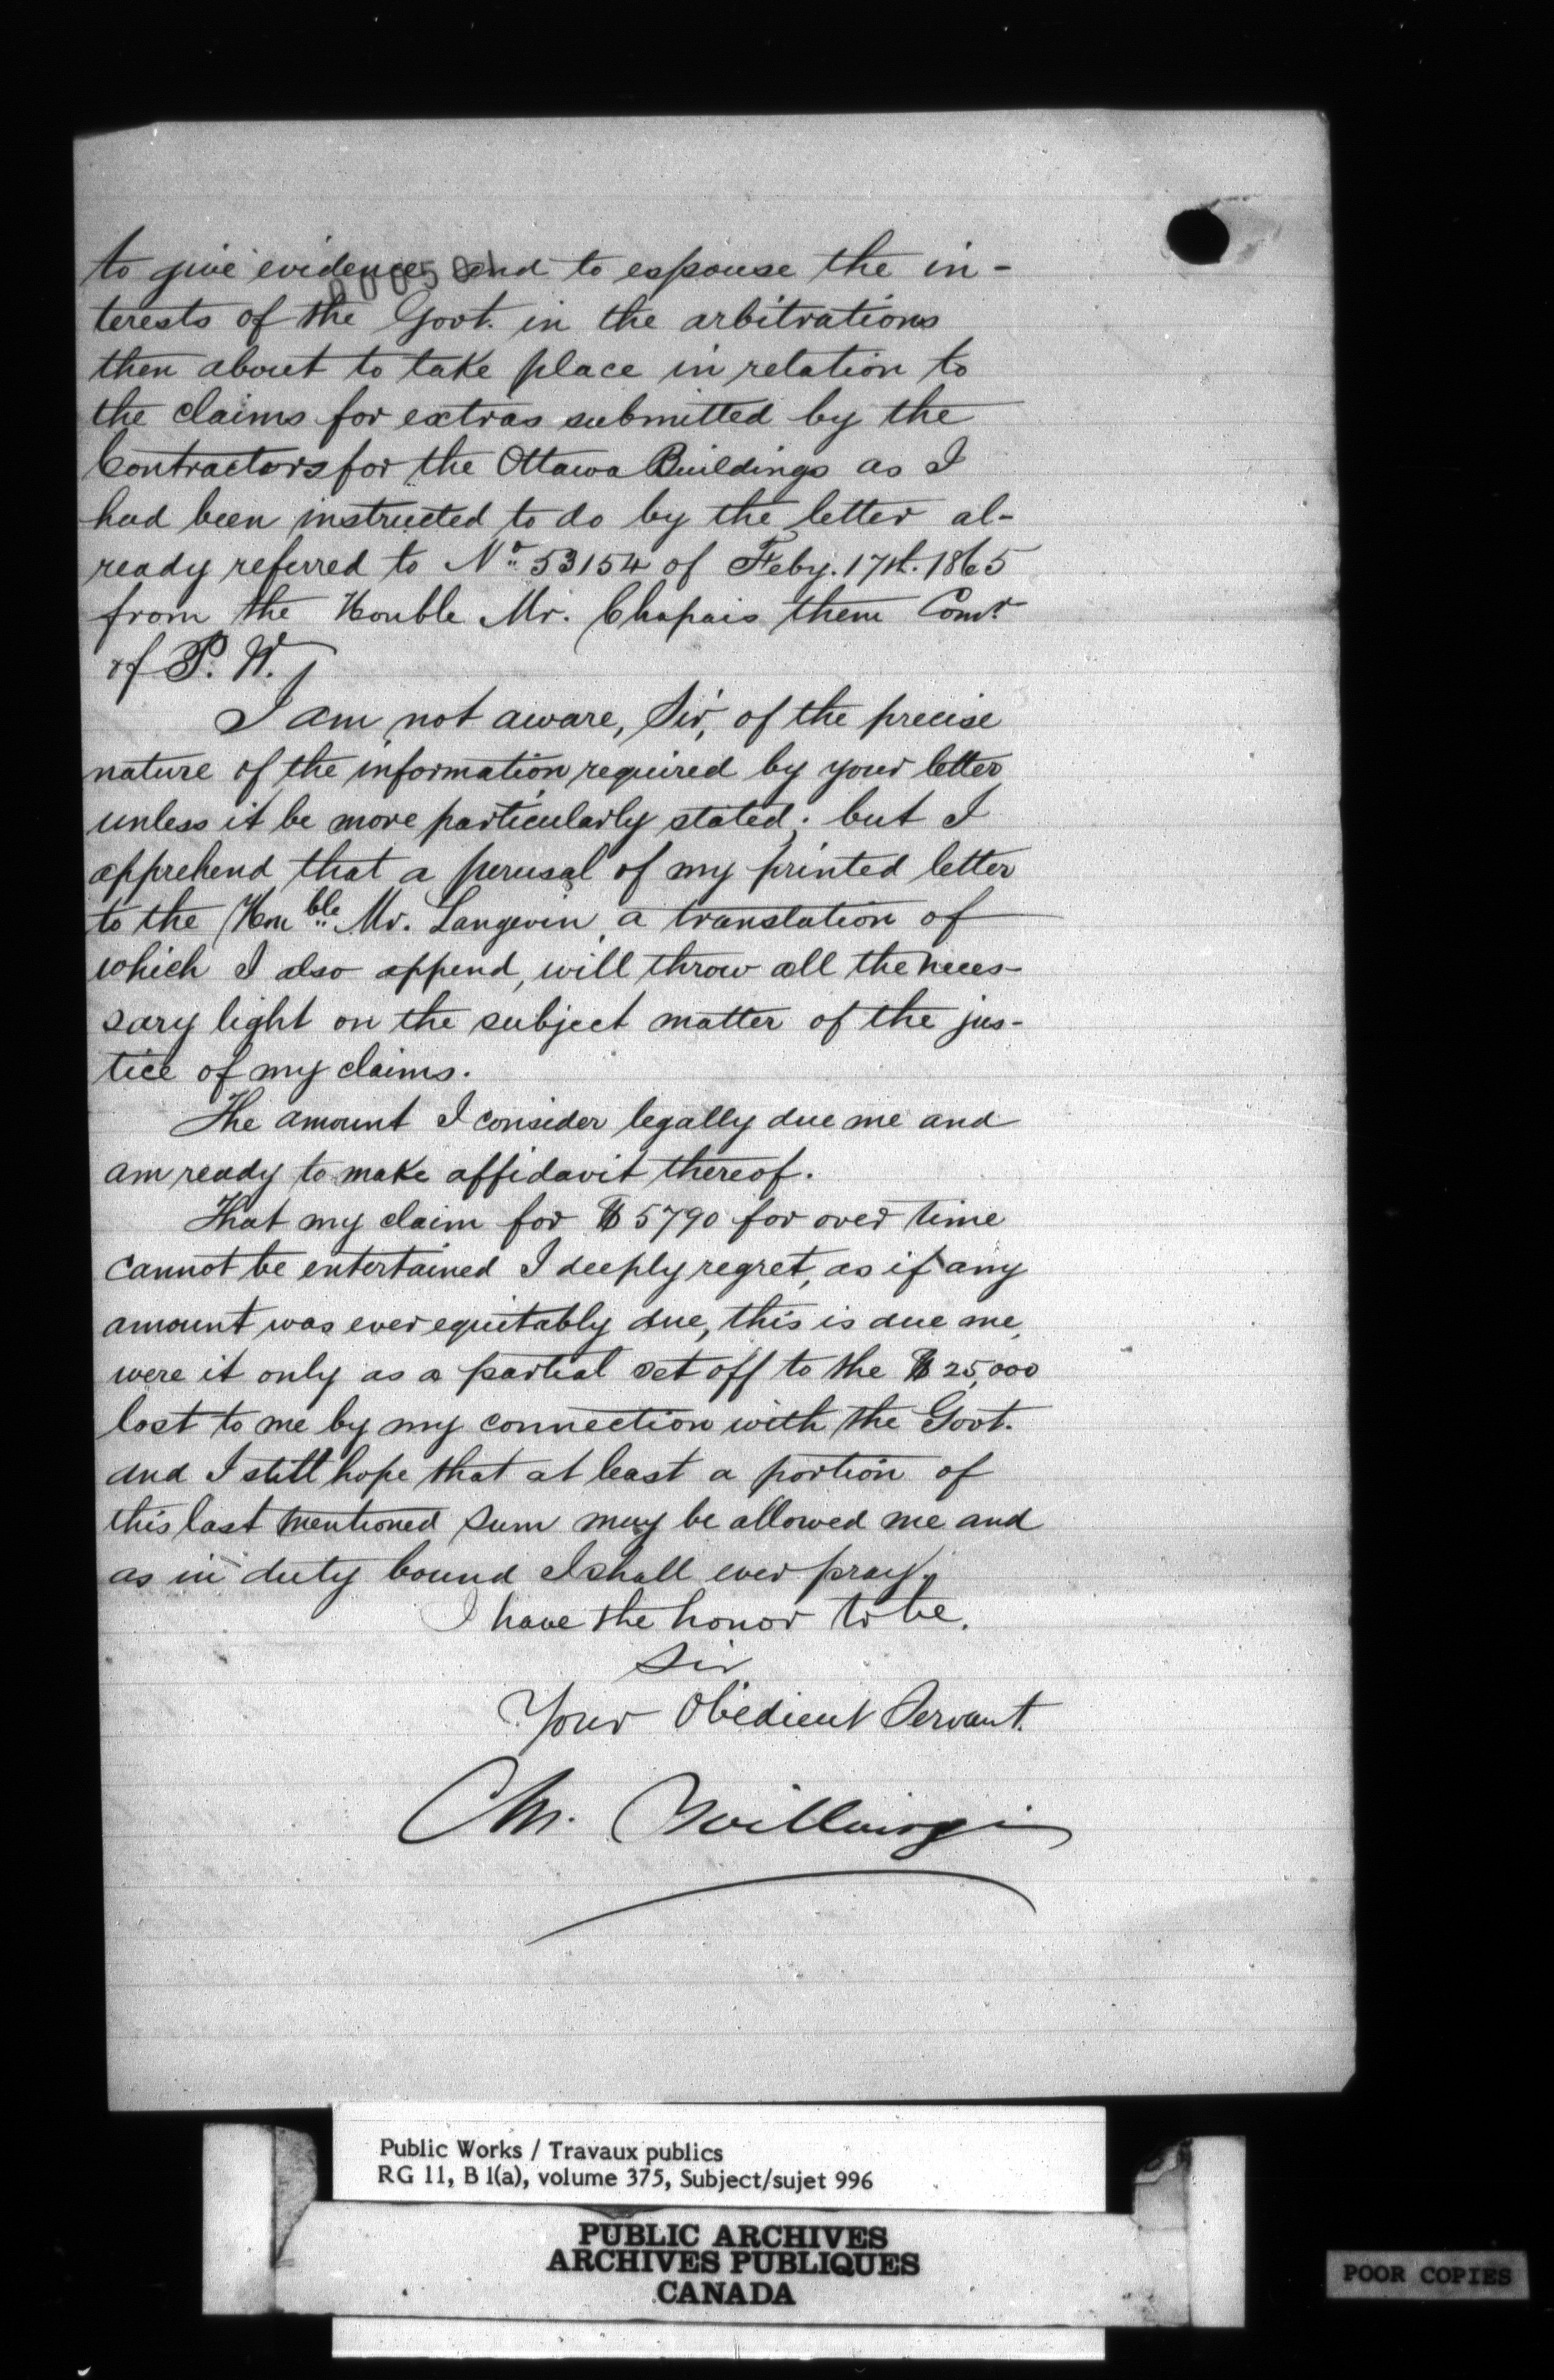 to give evidence and to espouse the in-
terests of the Govt. in the arbitrations
then about to take place in relation to
the claims for extras submitted by the
Contractors for the Ottawa Buildings as I
had been instructed to do by the letter al-
ready referred to No. 53154 of Feby. 17th. 1865
from the Honble Mr. Chapais them Comr.
of P. W.
I am not aware, Sir, of the precise
nature of the information required by your letter
unless it be more particularly stated; but I
apprehend that a perusal of my printed letter
to the Honble. Mr. Langevin, a translation of
which I also append, will throw all the neces-
sary light on the subject matter of the jus-
tice of my claims.
The amount I consider legally due me and
am ready to make affidavit thereof.
That my claim for $5790 for over time
cannot be entertained I deeply regret, as if any
amount was ever equitably due, this is due me,
were it only as a partial set off to the $25,000
lost to me by my connection with the Govt.
and I still hope that at least a portion of
this last mentioned sum may be allowed me and
as in duty bound I shall ever pray.
I have the honor to be.
Sir
Your Obedient Servant.
Public Works / Travaux publics
RG 11, B 1(a), volume 375, Subject/sujet 996
PUBLIC ARCHIVES
ARCHIVES PUBLIQUES
CANADA
POOR COPIES